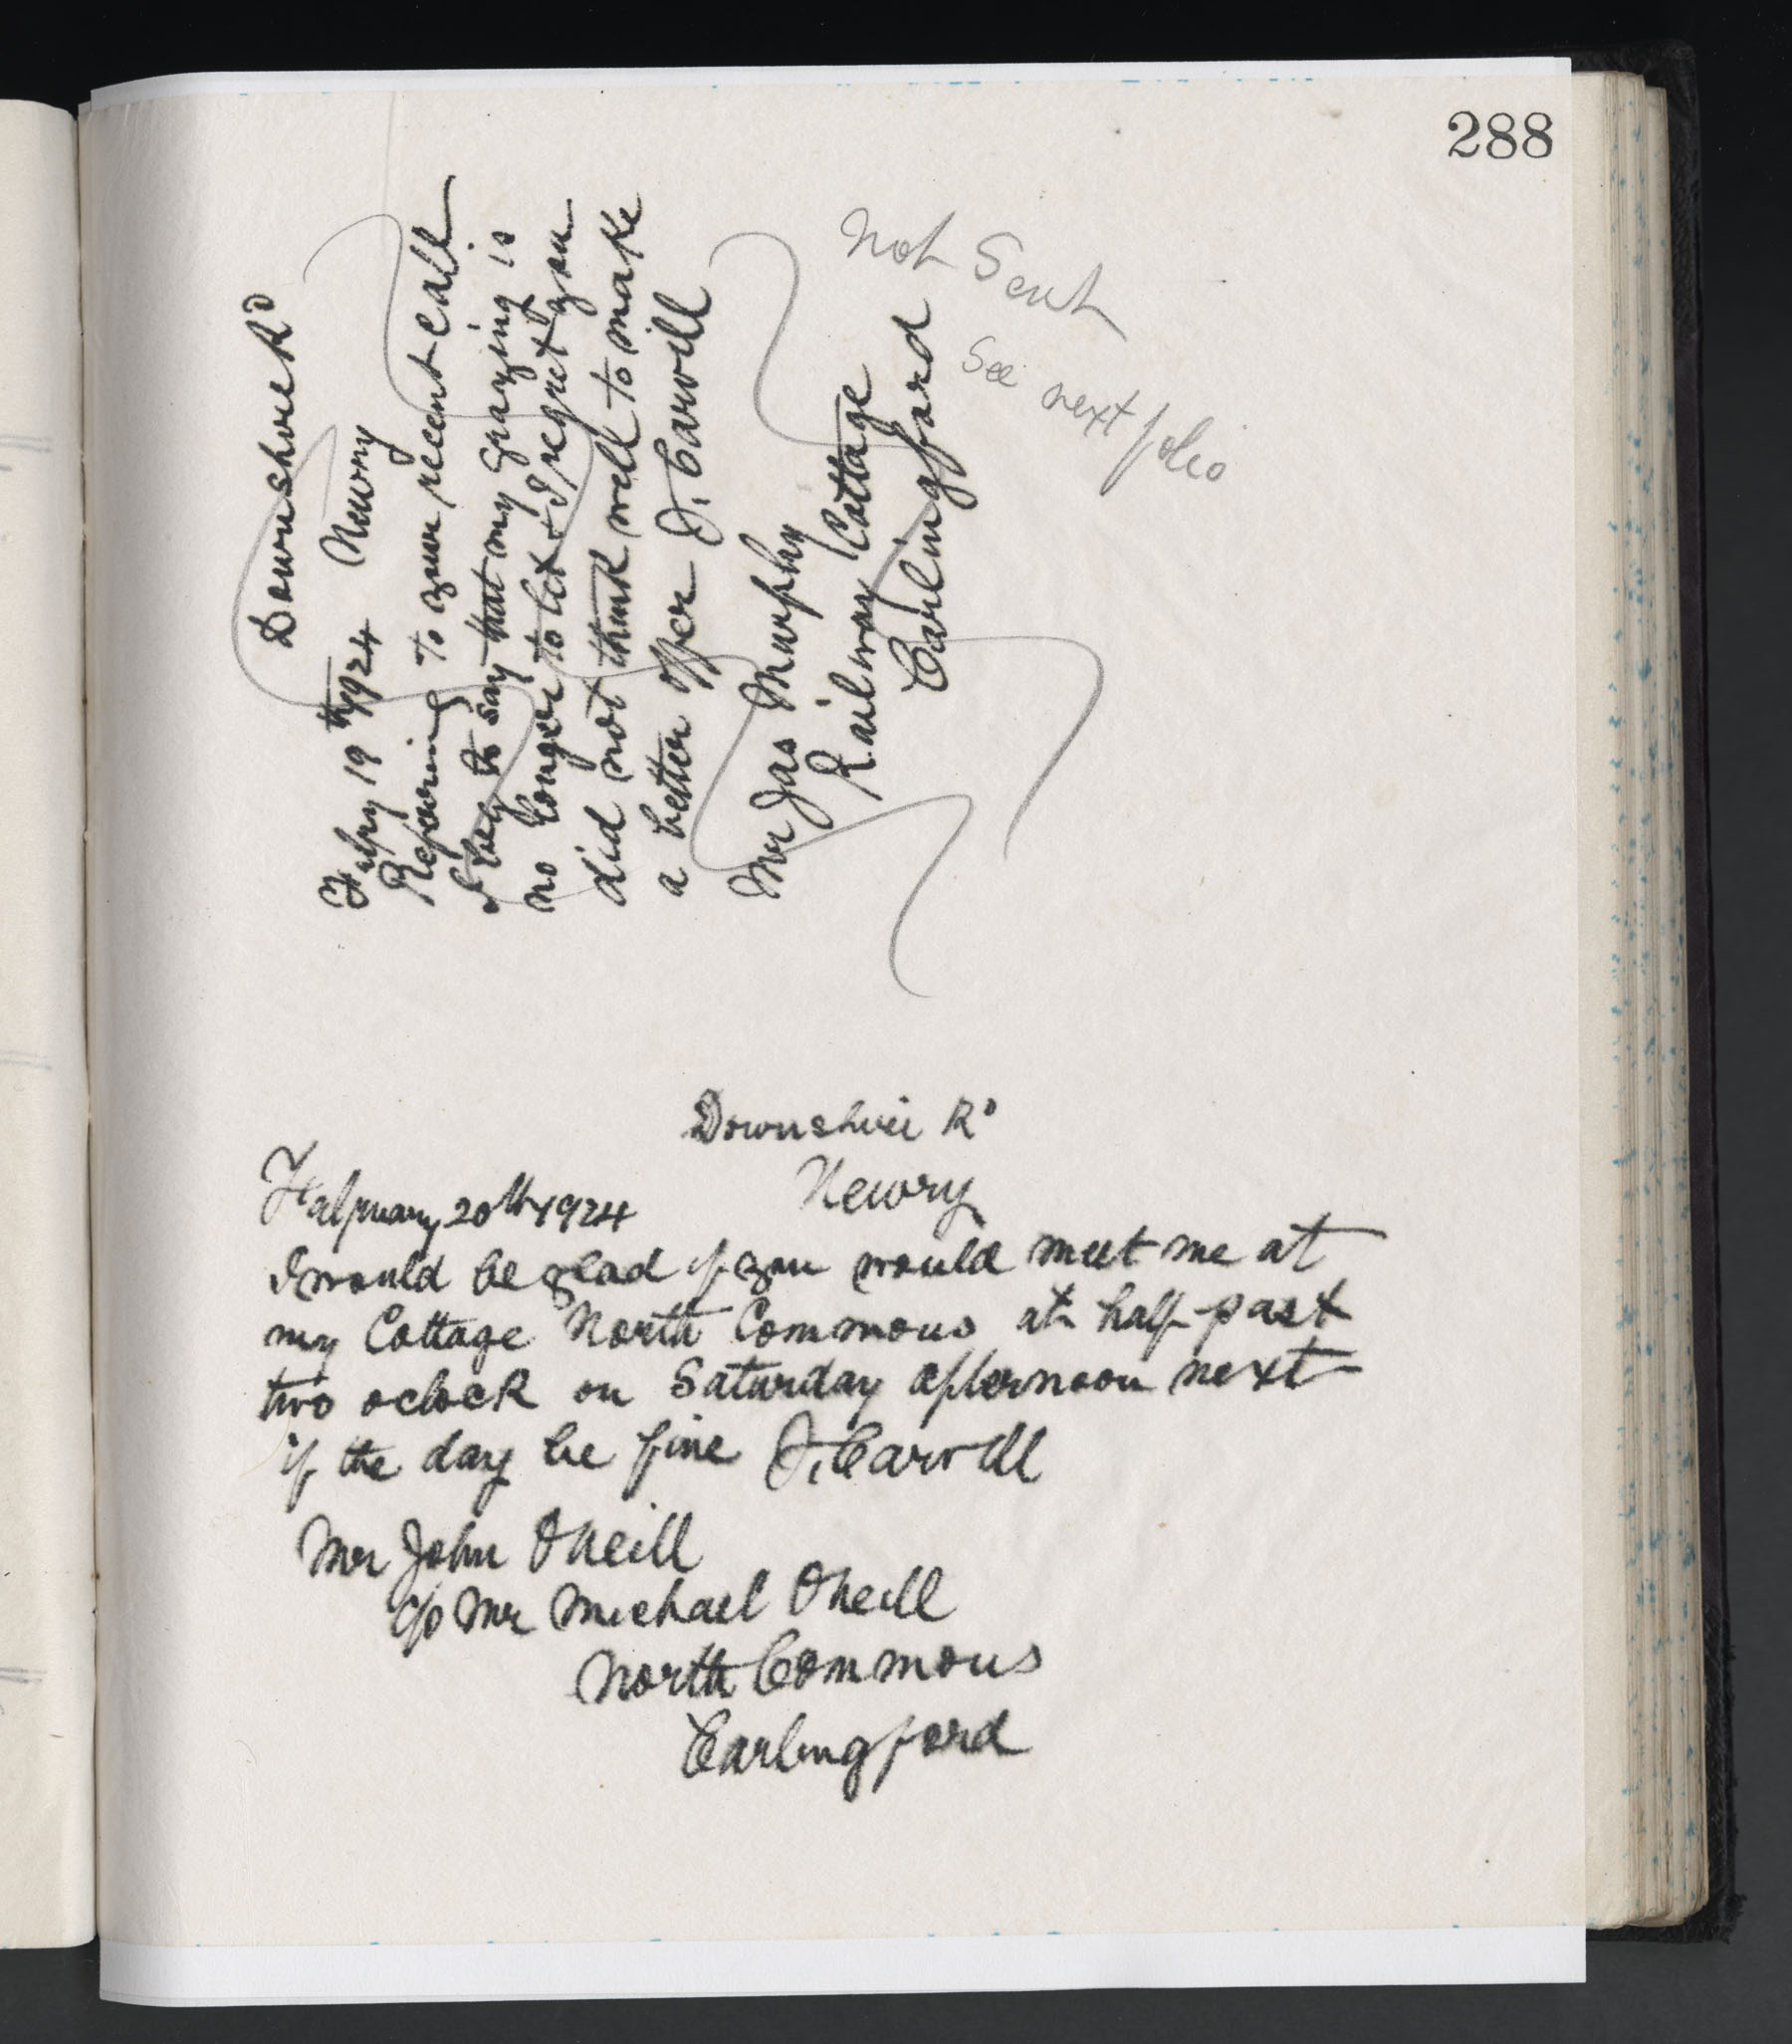 288
Downshire Rd
Feby 19th 1924 Newry
Referring to your recent call
I beg to say that my grazing is
no longer to let & I regret you
did not think well to make
a better offer J. Carvill
Mr Jas Murphy
Railway Cottage
Carlingford
Not Sent
See next folio
Downshire Rd
Newry
February 20th 1924
I would be glad if you would meet me at
my Cottage North Commons at half past
two oclock on Saturday afternoon next
if the day be fine J. Carvill
Mr John ONeill
c/o Mr Michael ONeill
North Commons
Carlingford